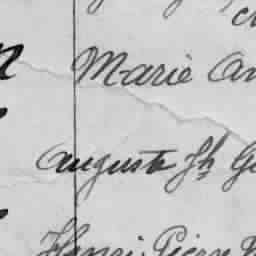 Marie An
Auguste Jh Ge
Henri Pierre